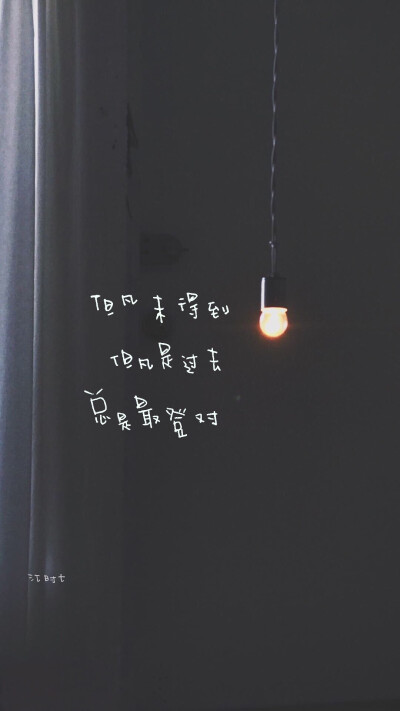 但凡未得到
但凡是过去
总是最登对
江时七